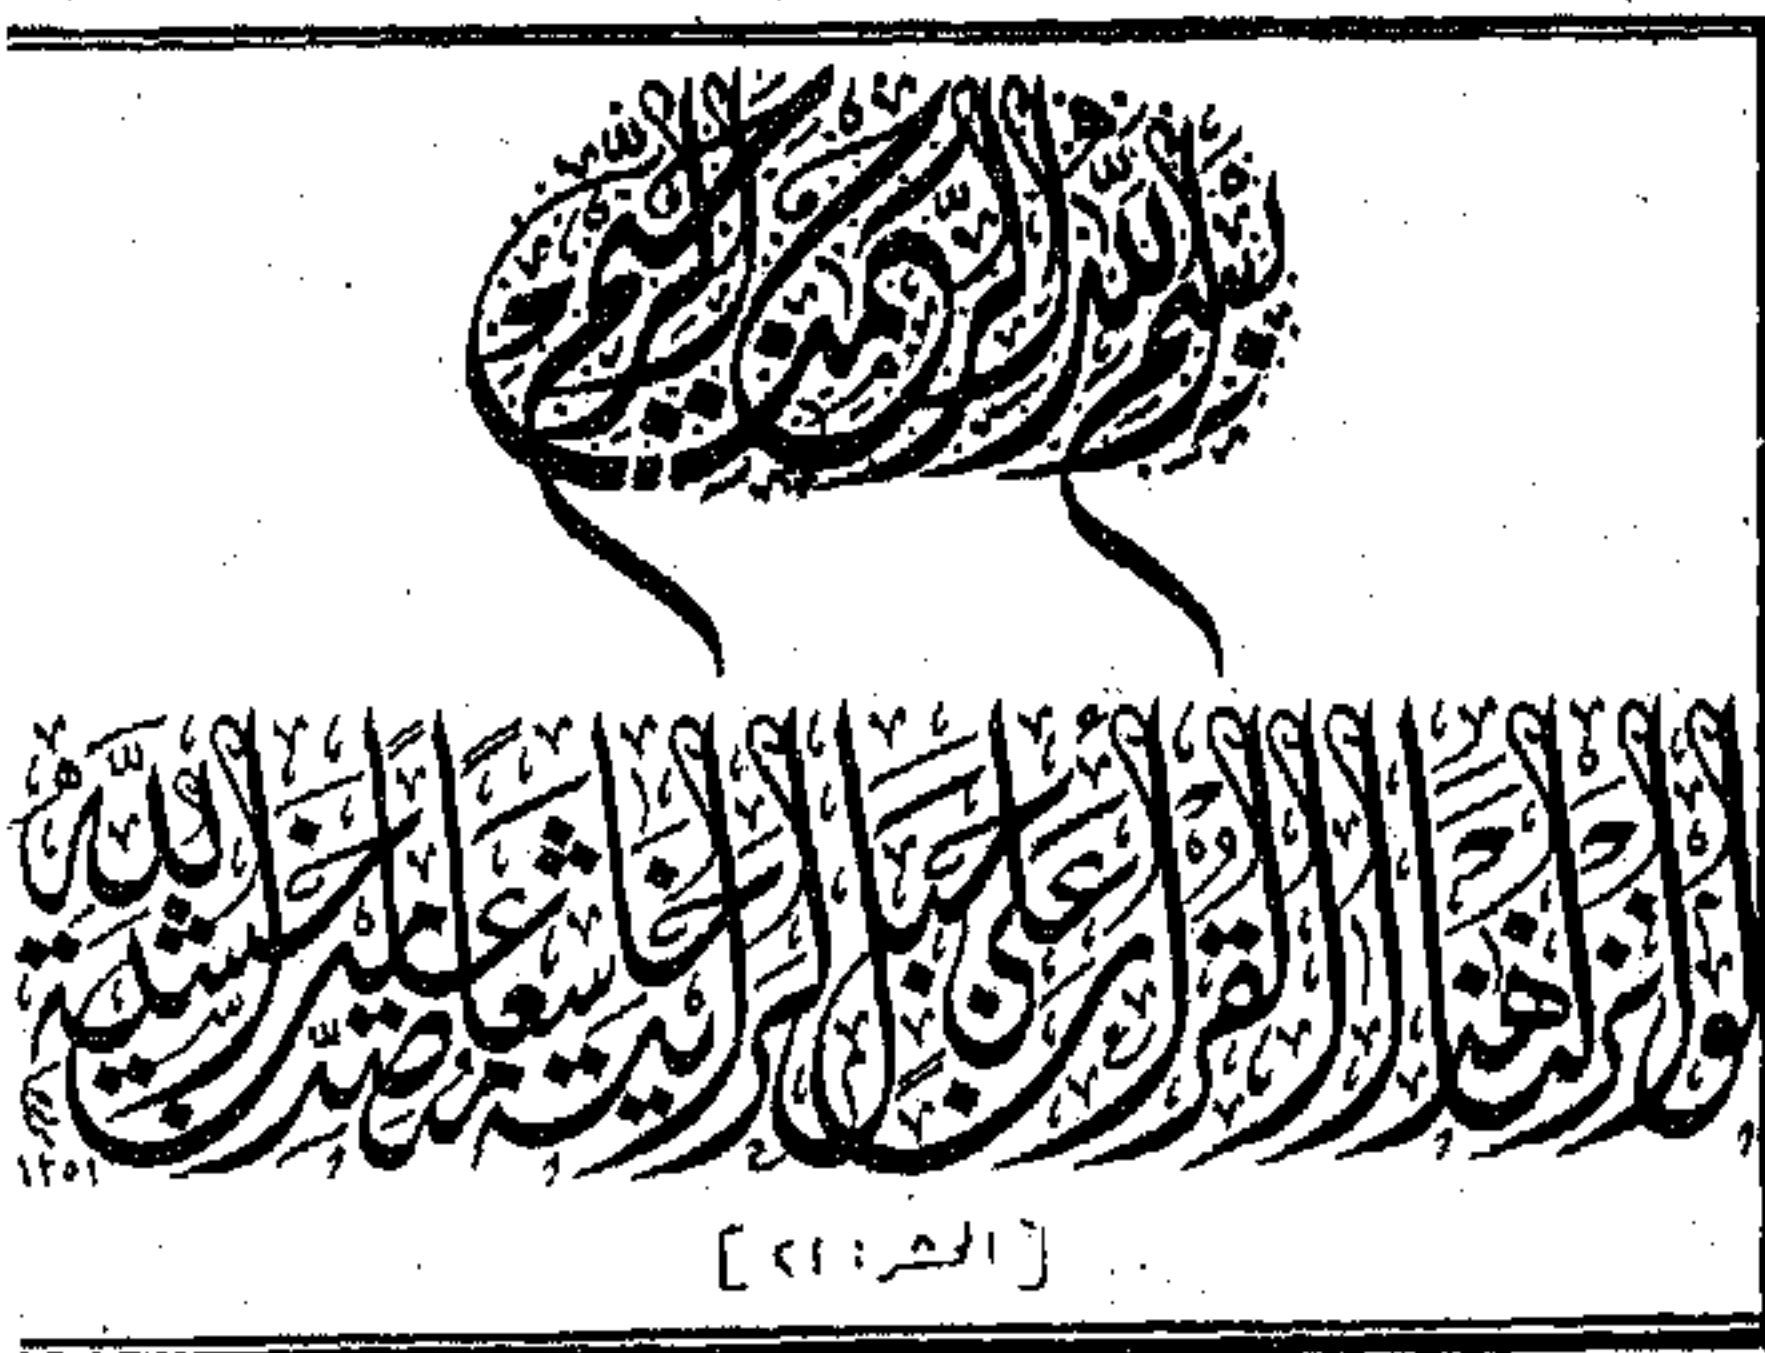 بسم الله الرحمن الرحيم
لو أنزلنا هذا القرآن على جبل لرأيته خاشعا متصدعا من خشية الله
١٣٥١
[الحشر: ٢١]